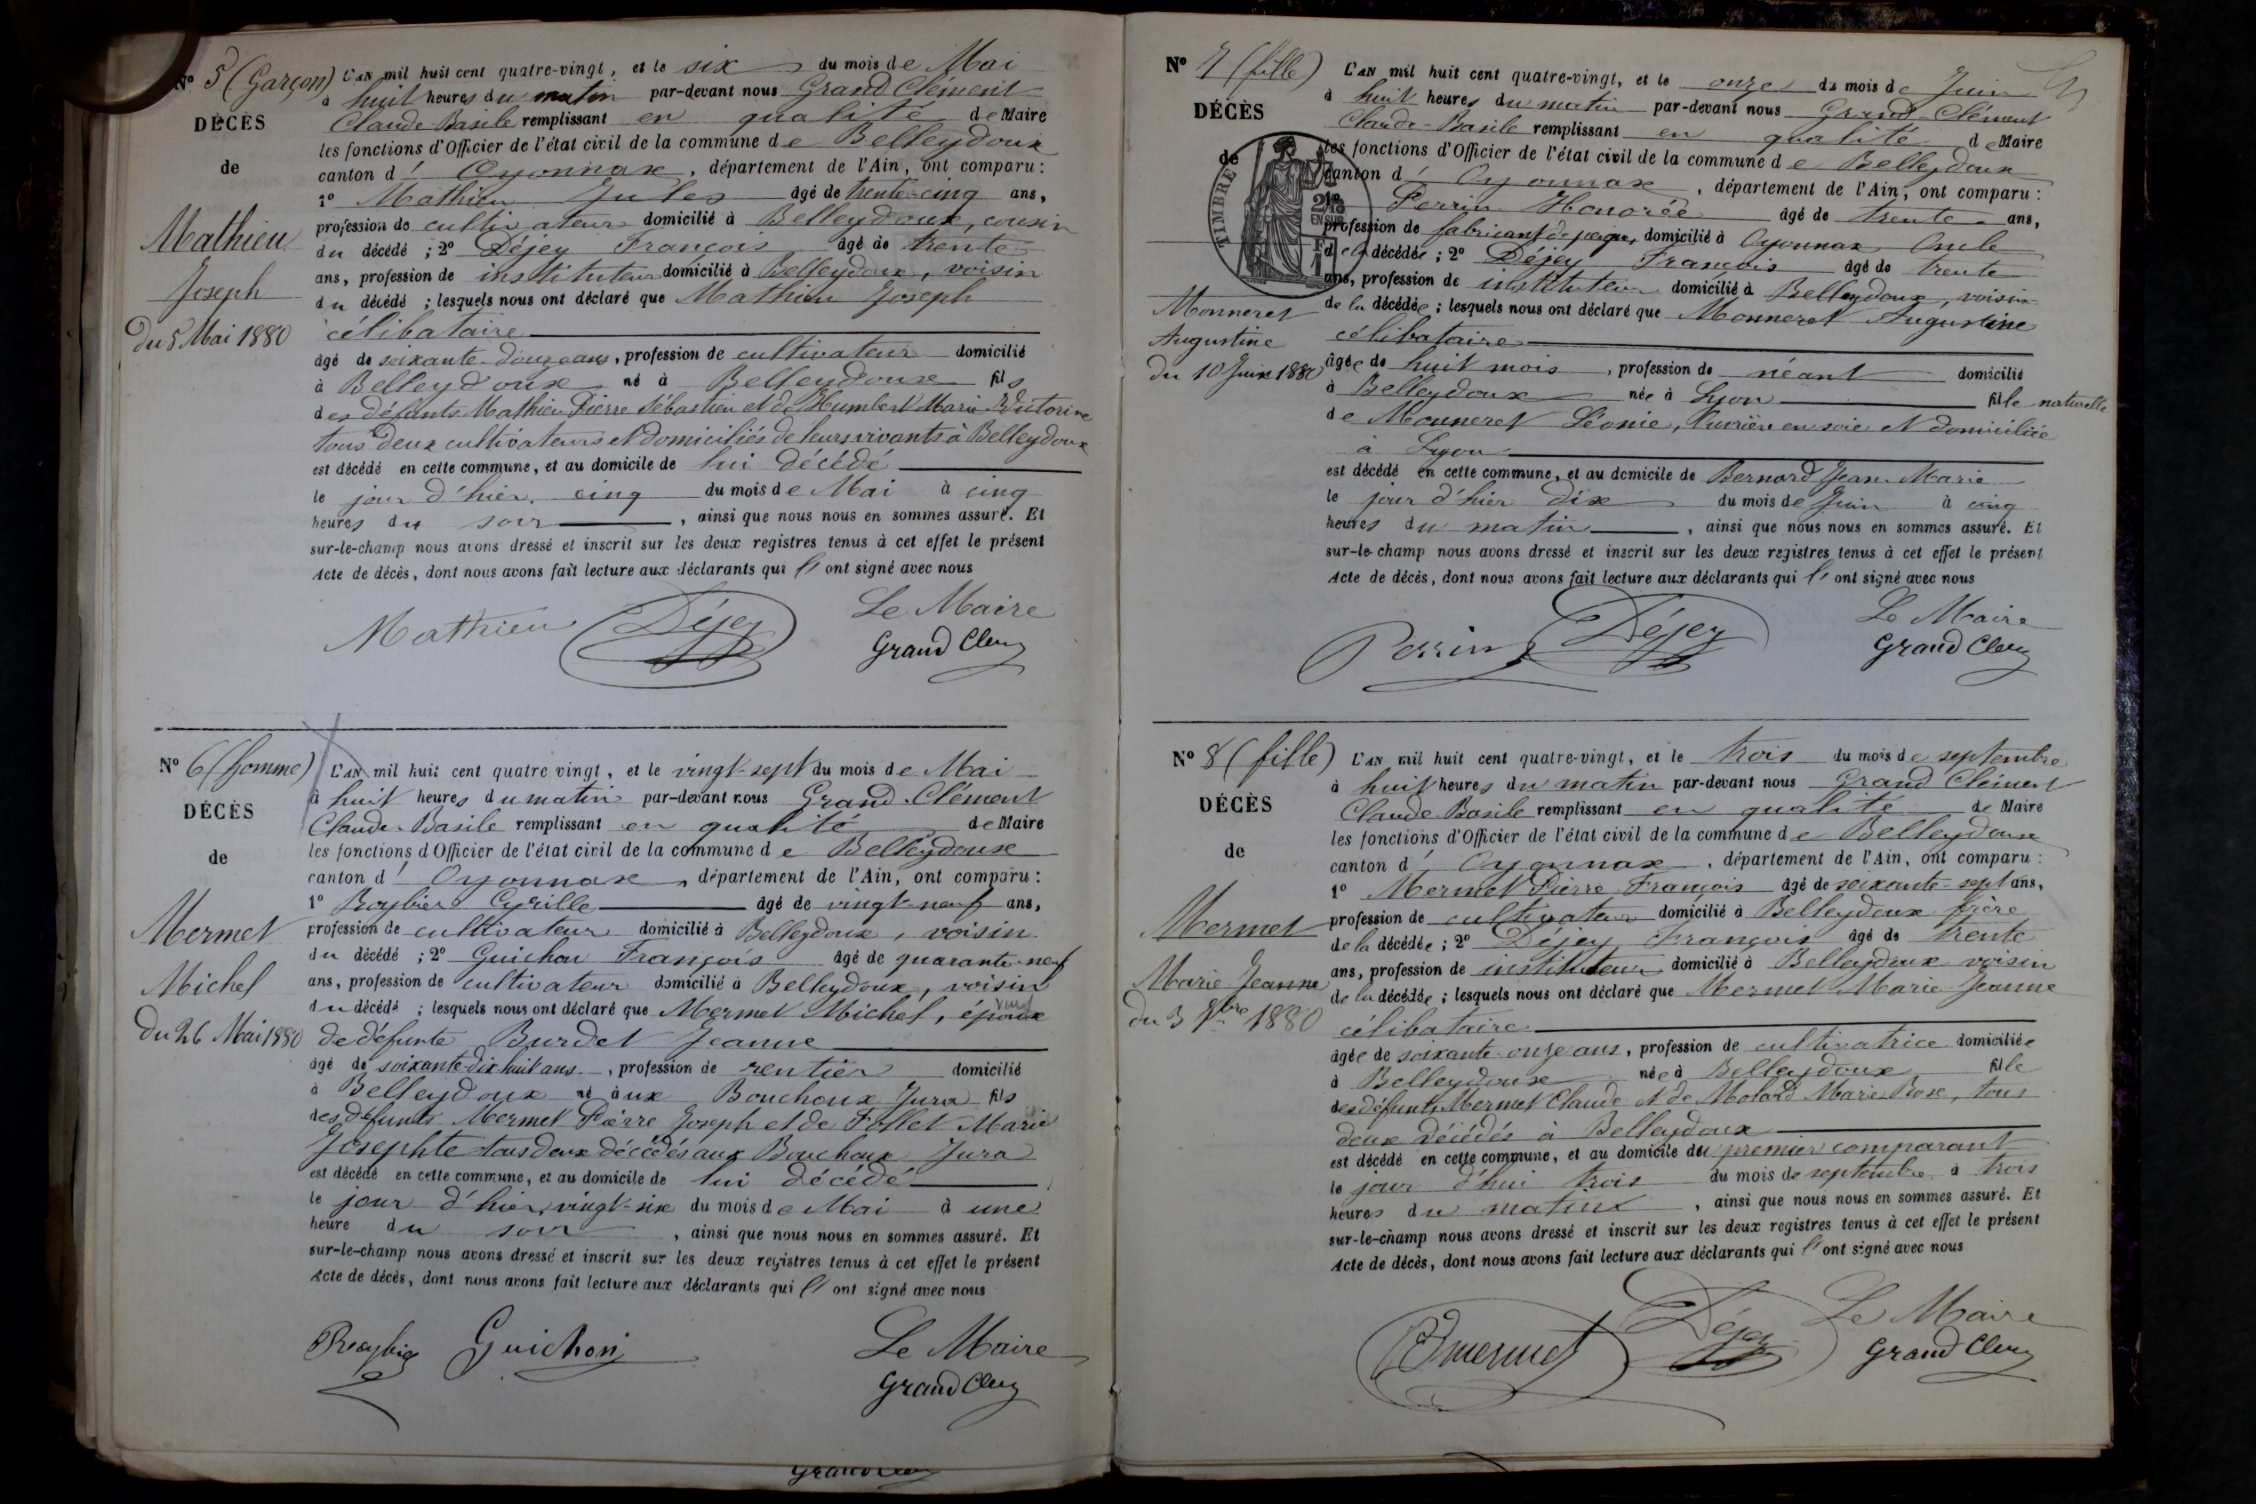 N° 5 (Garçon)
DÉCÈS
de
Mathieu
Joseph
Du 5 Mai 1880
L'AN mil huit cent quatre-vingt, et le six du mois de Mai
à huit heures du matin par-devant nous Grand Clément
Claude Basile remplissant en qualité de Maire
les fonctions d'Officier de l'état civil de la commune de Belleydoux
canton d'Oyonnax, département de l'Ain, ont comparu :
1° Mathieu Jules âgé de trente-cinq ans,
profession de cultivateur domicilié à Belleydoux, cousin
du décédé ; 2° Déjey François âgé de trente
ans, profession de instituteur domicilié à Belleydoux, voisin
du décédé ; lesquels nous ont déclaré que Mathieu Joseph
célibataire
âgé de soixante-douze ans, profession de cultivateur domicilié
à Belleydoux né à Belleydoux fils
des défunts Mathieu Pierre Sébastien et de Humbert Marie Victorine
tous deux cultivateurs et domiciliés de leurs vivants à Belleydoux
est décédé en cette commune, et au domicile de lui décédé
le jour d'hier, cinq du mois de Mai à cinq
heures du soir, ainsi que nous nous en sommes assuré. Et
sur-le-champ nous avons dressé et inscrit sur les deux registres tenus à cet effet le présent
Acte de décès, dont nous avons fait lecture aux déclarants qui l'ont signé avec nous
Le Maire
Mathieu Déjey Grand Clem
N° 6 (homme)
DÉCÈS
de
Mermet
Michel
Du 26 Mai 1880
L'AN mil huit cent quatre vingt, et le vingt-sept du mois de Mai
à huit heures du matin par-devant nous Grand-Clément
Claude-Basile remplissant en qualité de Maire
les fonctions d'Officier de l'état civil de la commune de Belleydoux
canton d'Oyonnax, département de l'Ain, ont comparu :
1° Roybier Cyrille âgé de vingt-neuf ans,
profession de cultivateur domicilié à Belleydoux, voisin
du décédé ; 2° Guichon François âgé de quarante-neuf
ans, profession de cultivateur domicilié à Belleydoux, voisin
du décédé ; lesquels nous ont déclaré que Mermet Michel, époux veuf
de défunte Burdet Jeanne
âgé de soixante-dix huit ans, profession de rentier domicilié
à Belleydoux né aux Bouchoux Jura fils
des défunts Mermet Pierre Joseph et de Follet Marie
Josephte tous deux décédés aux Bouchoux Jura
est décédé en cette commune, et au domicile de lui décédé
le jour d'hier, vingt-six du mois de Mai à une
heure du soir, ainsi que nous nous en sommes assuré. Et
sur-le-champ nous avons dressé et inscrit sur les deux registres tenus à cet effet le présent
Acte de décès, dont nous avons fait lecture aux déclarants qui l'ont signé avec nous
Guichon Le Maire
Grand Clem
N° 7 (fille)
DÉCÈS
de
TIMBRE
Monneret
Augustine
du 10 Juin 1880
L'AN mil huit cent quatre-vingt, et le onze du mois de Juin
à huit heures du matin par-devant nous Grand-Clément
Claude-Basile remplissant en qualité de Maire
les fonctions d'Officier de l'état civil de la commune de Belleydoux
canton d'Oyonnax, département de l'Ain, ont comparu :
1° Perrin Honorée âgé de trente ans,
profession de fabricant de peignes, domicilié à Oyonnax Oncle
de la décédée ; 2° Déjey François âgé de trente
ans, profession de instituteur domicilié à Belleydoux, voisin
de la décédée ; lesquels nous ont déclaré que Monneret Augustine
célibataire
âgée de huit mois, profession de néant domicilié
à Belleydoux née à Lyon fille naturelle
de Monneret Léonie, ouvrière en soie et domiciliée
à Lyon
est décédé en cette commune, et au domicile de Bernard Jean Marie
le jour d'hier dix du mois de Juin à cinq
heures du matin, ainsi que nous nous en sommes assuré. Et
sur-le-champ nous avons dressé et inscrit sur les deux registres tenus à cet effet le présent
Acte de décès, dont nous avons fait lecture aux déclarants qui l'ont signé avec nous
Le Maire
Perrin Déjey Grand Clem
N° 8 (fille)
DÉCÈS
de
Mermet
Marie Jeanne
du 3 7bre 1880
L'AN mil huit cent quatre-vingt, et le trois du mois de septembre
à huit heures du matin par-devant nous Grand Clément
Claude Basile remplissant en qualité de Maire
les fonctions d'Officier de l'état civil de la commune de Belleydoux
canton d'Oyonnax, département de l'Ain, ont comparu :
1° Mermet Pierre François âgé de soixante-sept ans,
profession de cultivateur domicilié à Belleydoux frère
de la décédée ; 2° Déjey François âgé de trente
ans, profession de instituteur domicilié à Belleydoux voisin
de la décédée ; lesquels nous ont déclaré que Mermet Marie Jeanne
célibataire
âgée de soixante-onze ans, profession de cultivatrice domiciliée
à Belleydoux née à Belleydoux fille
des défunts Mermet Claude et de Molard Marie Rose, tous
deux décédés à Belleydoux
est décédé en cette commune, et au domicile du premier comparant
le jour d'hui trois du mois de septembre à trois
heures du matin, ainsi que nous nous en sommes assuré. Et
sur-le-champ nous avons dressé et inscrit sur les deux registres tenus à cet effet le présent
Acte de décès, dont nous avons fait lecture aux déclarants qui l'ont signé avec nous
Déjey Le Maire
mermet Grand Clem